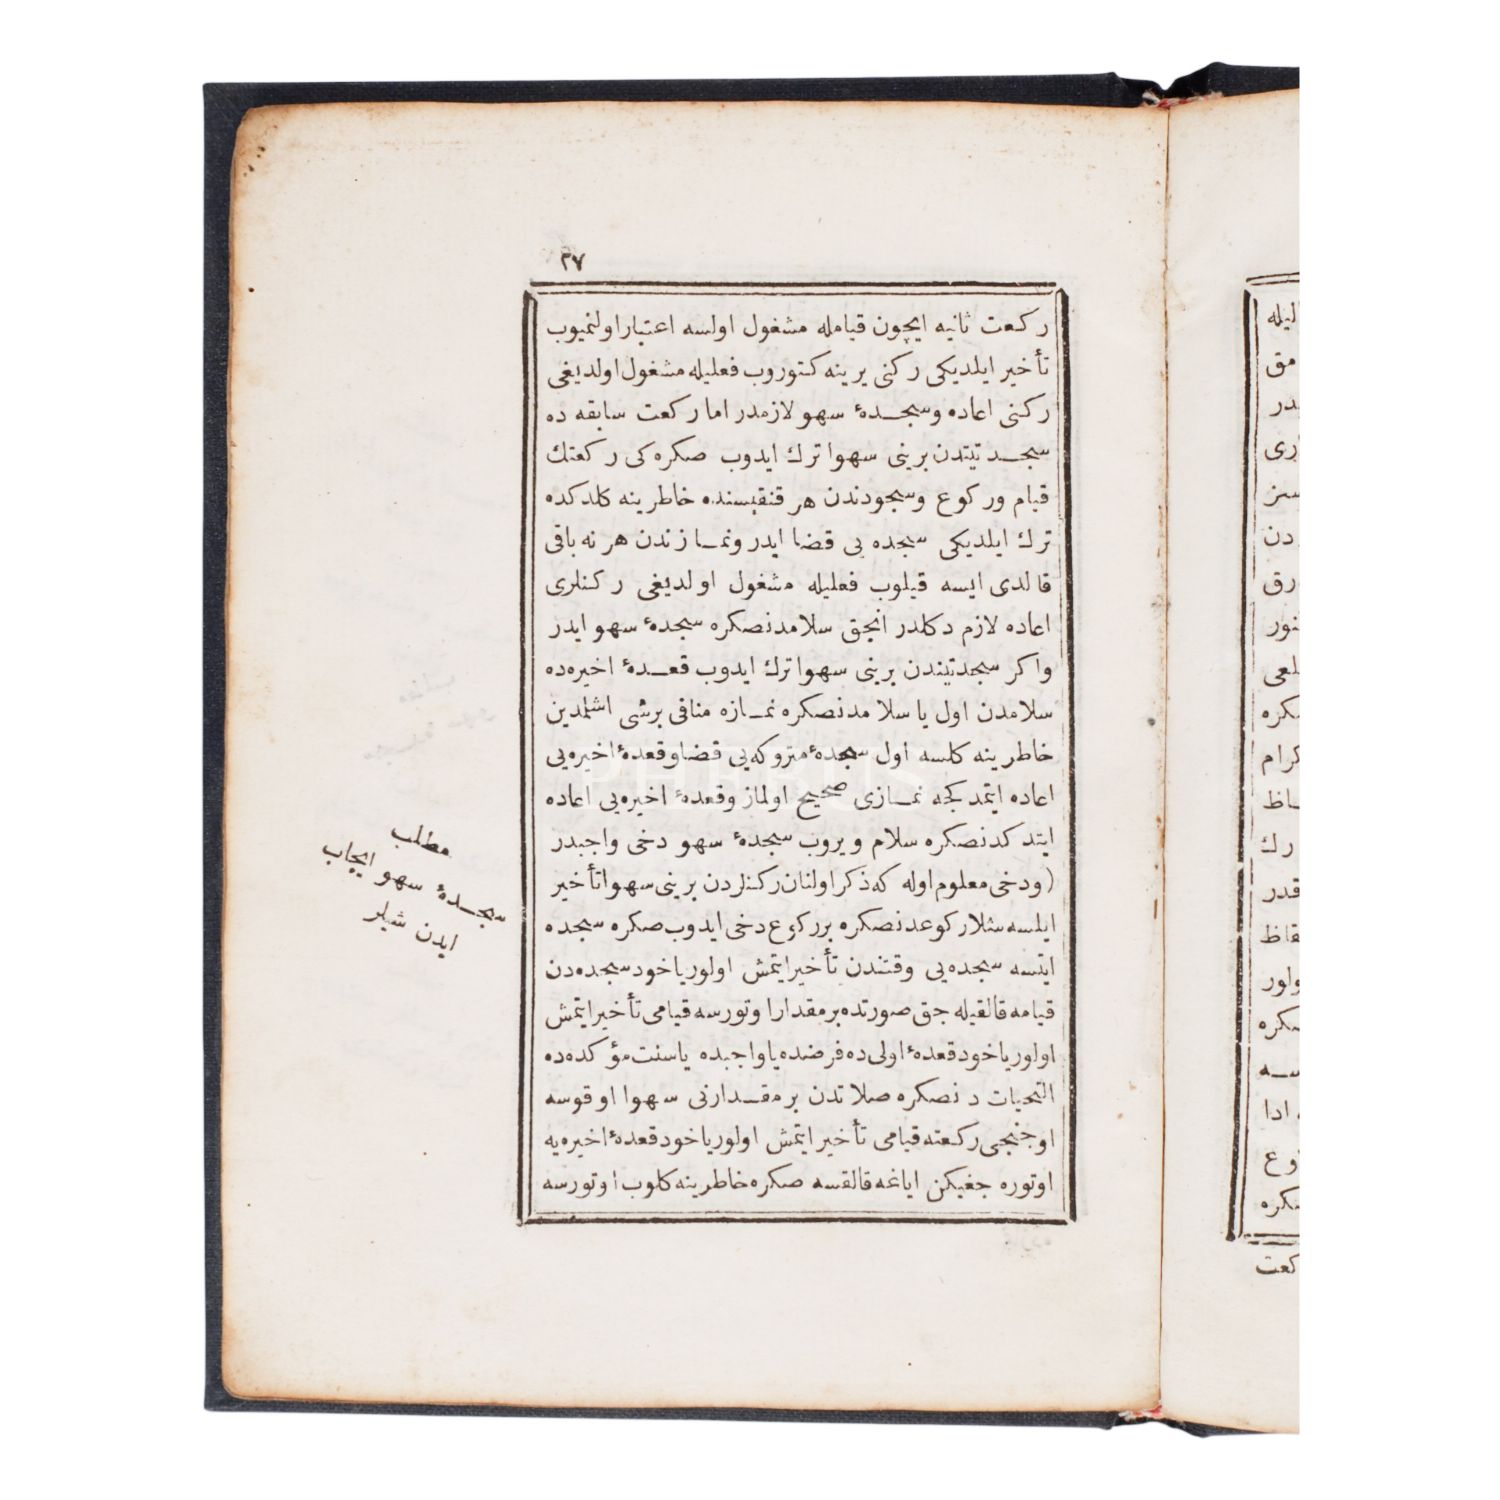 ٢٧
ركعت ثانيه ايچون قيامله مشغول اولسه اعتبار اولنميوب
تأخير ايلديكى ركنى يرينه كتوروب فعليله مشغول اولديغى
ركنى اعاده وسجدهٔ سهو لازمدر اما ركعت سابقه ده
سجدتيندن برينى سهوا ترك ايدوب صكره كى ركعتك
قيام وركوع وسجودندن هر قنقيسنده خاطرينه كلدكده
ترك ايلديكى سجده يى قضا ايدر ونمازندن هر نه باقى
قالدى ايسه قيلوب فعليله مشغول اولديغى ركنلرى
اعاده لازم دكلدر انجق سلامدنصكره سجدهٔ سهو ايدر
واكر سجدتيندن برينى سهوا ترك ايدوب قعدهٔ اخيره ده
سلامدن اول يا سلامدنصكره نمازه منافى برشى اشلمدين
خاطرينه كلسه اول سجدهٔ متروكه يى قضا وقعدهٔ اخيره يى
اعاده ايتمدكجه نمازى صحيح اولماز وقعدهٔ اخيره يى اعاده
ايتدكدنصكره سلام ويروب سجدهٔ سهو دخى واجبدر
(ودخى معلوم اوله كه ذكر اولنان ركنلردن برينى سهوا تأخير
ايلسه مثلا ركوعدنصكره بر ركوع دخى ايدوب صكره سجده
ايتسه سجده يى وقتندن تأخير ايتمش اولور ياخود سجده دن
قيامه قالقيله جق صورتده بر مقدار اوتورسه قيامى تأخير ايتمش
اولور ياخود قعدهٔ اولى ده فرضده يا واجبده يا سنت مؤكده ده
التحياتدنصكره صلاتدن بر مقدارنى سهوا اوقوسه
اوجنجى ركعته قيامى تأخير ايتمش اولور ياخود قعدهٔ اخيره يه
اوتوره جغيكن اياغه قالقسه صكره خاطرينه كلوب اوتورسه
مطلب
سجدهٔ سهو ايجاب
ايدن شيلر
ليله
مق
در
رى
سز
دن
رق
نور
لعى
صكره
كرام
اظ
رك
قدر
قاظ
ولور
صكره
سه
ادا
وع
صكره
كعت
PHEBUS